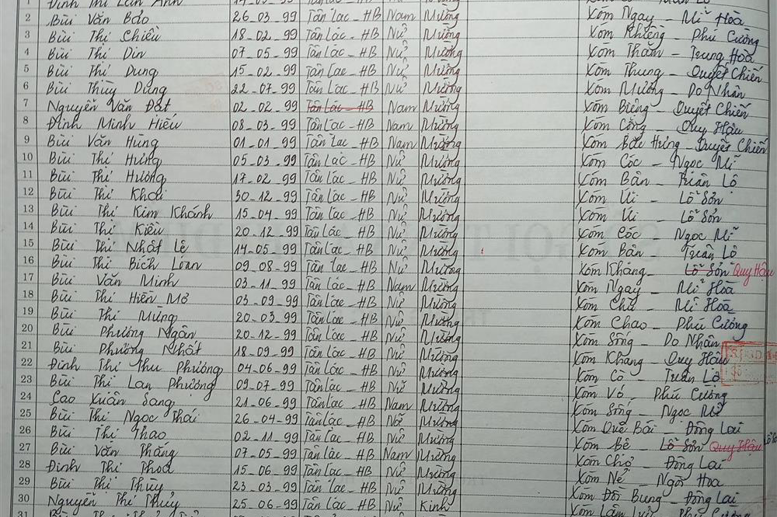 2 Bùi Văn Bảo 26-03-99 Tân Lạc-HB Nam Mường Xóm Ngay - Mĩ Hòa
3 Bùi Thị Chiều 18-02-99 Tân Lạc-HB Nữ Mường Xóm Khềng - Phú Cường
4 Bùi Thị Din 07-05-99 Tân Lạc-HB Nữ Mường Xóm Thăm - Trung Hòa
5 Bùi Thị Dung 15-02-99 Tân Lạc-HB Nữ Mường Xóm Thung - Quyết Chiến
6 Bùi Thùy Dung 22-07-99 Tân Lạc-HB Nữ Mường Xóm Mương - Do Nhân
7 Nguyễn Văn Đạt 02-02-99 Tân Lạc-HB Nam Mường Xóm Biệng - Quyết Chiến
8 Đinh Minh Hiếu 08-03-99 Tân Lạc-HB Nam Mường Xóm Cộng - Quy Hậu
9 Bùi Văn Hùng 01-01-99 Tân Lạc-HB Nam Mường Xóm Bắc Hưng - Quyết Chiến
10 Bùi Thị Hưng 05-03-99 Tân Lạc-HB Nữ Mường Xóm Cóc - Ngọc Mĩ
11 Bùi Thị Hương 17-02-99 Tân Lạc-HB Nữ Mường Xóm Bản - Tuân Lộ
12 Bùi Thị Khải 30-12-99 Tân Lạc-HB Nữ Mường Xóm Úi - Lỗ Sơn
13 Bùi Thị Kim Khánh 15-04-99 Tân Lạc-HB Nữ Mường Xóm Úi - Lỗ Sơn
14 Bùi Thị Kiều 20-12-99 Tân Lạc-HB Nữ Mường Xóm Cóc - Ngọc Mĩ
15 Bùi Thị Nhật Lệ 14-05-99 Tân Lạc-HB Nữ Mường Xóm Bản - Tuân Lộ
16 Bùi Thị Bích Loan 09-08-99 Tân Lạc-HB Nữ Mường Xóm Khang - Lỗ Sơn Quy Hậu
17 Bùi Văn Minh 03-11-99 Tân Lạc-HB Nam Mường Xóm Ngay - Mĩ Hòa
18 Bùi Thị Hiền Mơ 03-09-99 Tân Lạc-HB Nữ Mường Xóm Chù - Mĩ Hòa
19 Bùi Thị Mừng 20-03-99 Tân Lạc-HB Nữ Mường Xóm Chao - Phú Cường
20 Bùi Phương Ngân 20-12-99 Tân Lạc-HB Nữ Mường Xóm Sông - Do Nhân
21 Bùi Phương Nhất 18-09-99 Tân Lạc-HB Nữ Mường Xóm Khang - Quy Hậu
22 Đinh Thị Thu Phương 04-06-99 Tân Lạc-HB Nữ Mường Xóm Cò - Tuân Lộ
23 Bùi Thị Lan Phương 09-07-99 Tân Lạc-HB Nữ Mường Xóm Vó - Phú Cường
24 Cao Xuân Sang 21-06-99 Tân Lạc-HB Nam Mường Xóm Sông - Ngọc Mĩ
25 Bùi Thị Ngọc Thái 26-04-99 Tân Lạc-HB Nữ Mường Xóm Quê Bái - Đông Lai
26 Bùi Thị Thao 02-11-99 Tân Lạc-HB Nữ Mường Xóm Bẻ - Lỗ Sơn Quy Hậu
27 Bùi Văn Thắng 07-05-99 Tân Lạc-HB Nam Mường Xóm Chợ - Đông Lai
28 Đinh Thị Thoa 15-06-99 Tân Lạc-HB Nữ Mường Xóm Nẻ - Ngòi Hoa
29 Bùi Thị Thủy 23-03-99 Tân Lạc-HB Nữ Mường Xóm Đồi Bưng - Đông Lai
30 Nguyễn Thị Thủy 25-06-99 Tân Lạc-HB Nữ Kinh
31